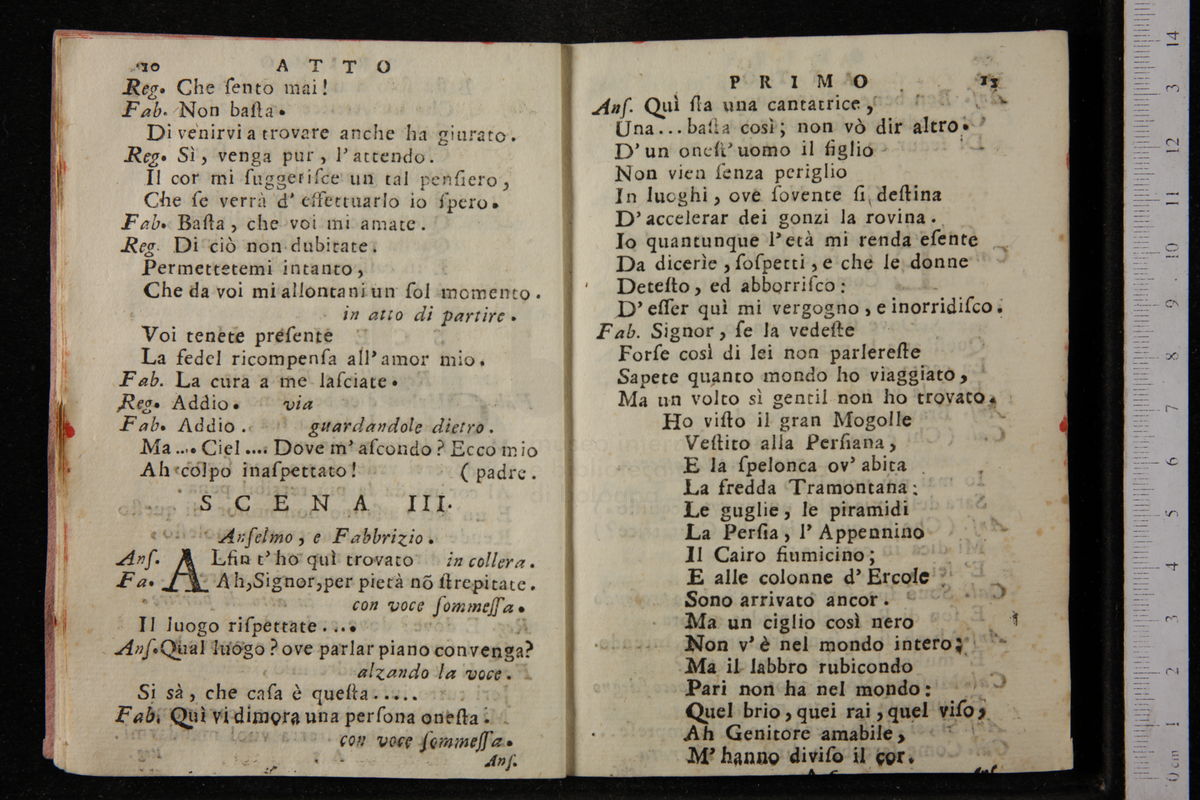 10 ATTO
Reg. Che ſento mai!
Fab. Non baſta.
Di venirvi a trovare anche ha giurato.
Reg. Sì, venga pur, l'attendo.
Il cor mi ſuggeriſce un tal penſiero,
Che ſe verrà d'effettuarlo io ſpero.
Fab. Baſta, che voi mi amate.
Reg. Di ciò non dubitate.
Permettetemi intanto,
Che da voi mi allontani un ſol momento.
in atto di partire.
Voi tenete preſente
La fedel ricompenſa all'amor mio.
Fab. La cura a me laſciate.
Reg. Addio. via
Fab. Addio. guardandole dietro.
Ma .... Ciel .... Dove m'aſcondo? Ecco mio
Ah colpo inaſpettato! (padre.
SCENA III.
Anſelmo, e Fabbrizio.
Anſ. ALfin t'ho quì trovato in collera.
Fa. Ah, Signor, per pietà nõ ſtrepitate.
con voce ſommeſſa.
Il luogo riſpettate....
Anſ. Qual luogo? ove parlar piano convenga?
alzando la voce.
Si sà, che caſa è queſta.....
Fab. Quì vi dimora una perſona oneſta.
con voce ſommeſſa.
Anſ.
PRIMO
Anſ. Quì ſta una cantatrice,
Una... baſta così; non vò dir altro.
D'un oneſt'uomo il figlio
Non vien ſenza periglio
In luoghi, ove ſovente ſi deſtina
D'accelerar dei gonzi la rovina.
Io quantunque l'età mi renda eſente
Da dicerìe, ſoſpetti, e che le donne
Deteſto, ed abborriſco:
D'eſſer quì mi vergogno, e inorridiſco.
Fab. Signor, ſe la vedeſte
Forſe così di lei non parlereſte
Sapete quanto mondo ho viaggiato,
Ma un volto sì gentil non ho trovato.
Ho viſto il gran Mogolle
Veſtito alla Perſiana,
E la ſpelonca ov'abita
La fredda Tramontana:
Le guglie, le piramidi
La Perſia, l'Appennino
Il Cairo fiumicino;
E alle colonne d'Ercole
Sono arrivato ancor.
Ma un ciglio così nero
Non v'è nel mondo intero;
Ma il labbro rubicondo
Pari non ha nel mondo:
Quel brio, quei rai, quel viſo,
Ah Genitore amabile,
M'hanno diviſo il cor.
0 cm 1 2 3 4 5 6 7 8 9 10 11 12 3 14